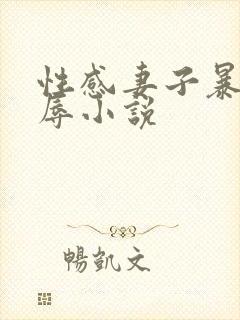 性感妻子暴
辱小说
暢凱文